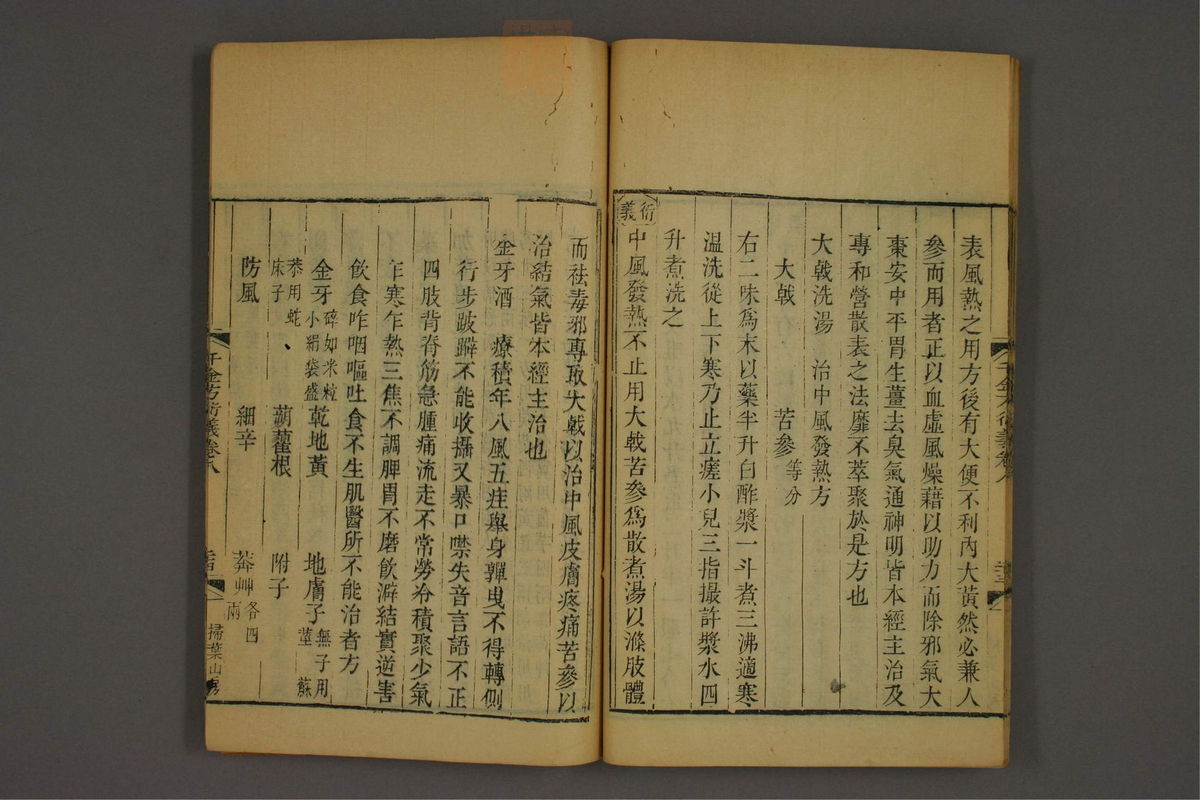 表風熱之用方後有大便不利內大黃然必兼人
參而用者正以血虛風燥藉以助力而除邪氣大
棗安中平胃生薑去臭氣通神明皆本經主治及
專和營散表之法靡不萃聚於是方也
大戟洗湯 治中風發熱方
大戟 苦參等分
右二味為末以藥半升白酢漿一斗煮三沸適寒
溫洗從上下寒乃止立瘥小兒三指撮許漿水四
升煮洗之
衍義 中風發熱不止用大戟苦參為散煮湯以滌肢體
而祛毒邪專取大戟以治中風皮膚疼痛苦參以
治結氣皆本經主治也
金牙酒 療積年八風五疰舉身嚲曳不得轉側
行步跛躃不能收攝又暴口噤失音言語不正
四肢背脊筋急腫痛流走不常勞冷積聚少氣
乍寒乍熱三焦不調脾胃不磨飲澼結實逆害
飲食咋咽嘔吐食不生肌醫所不能治者方
金牙碎如米粒小絹袋盛 乾地黃 地膚子無子用莖蘇
恭用蛇床子 蒴藋根 附子
防風 細辛 莽艸各四兩
千金方衍義卷八
掃葉山房